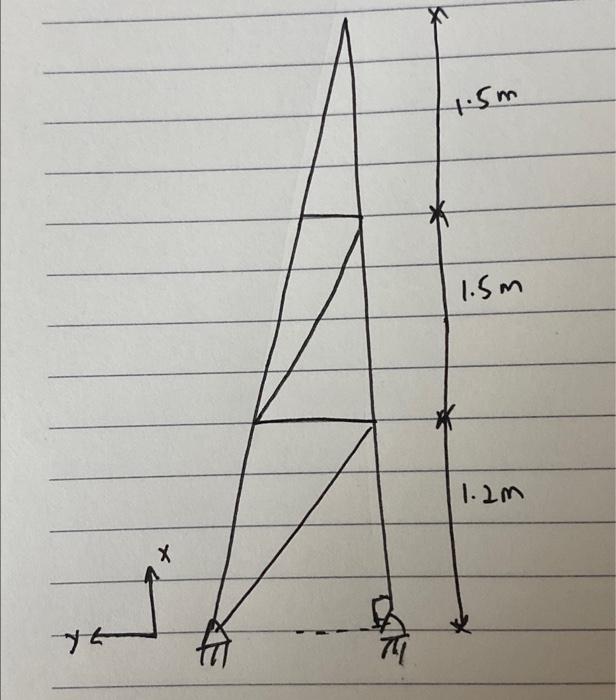 1.5m
1.5m
1.2m
x
y